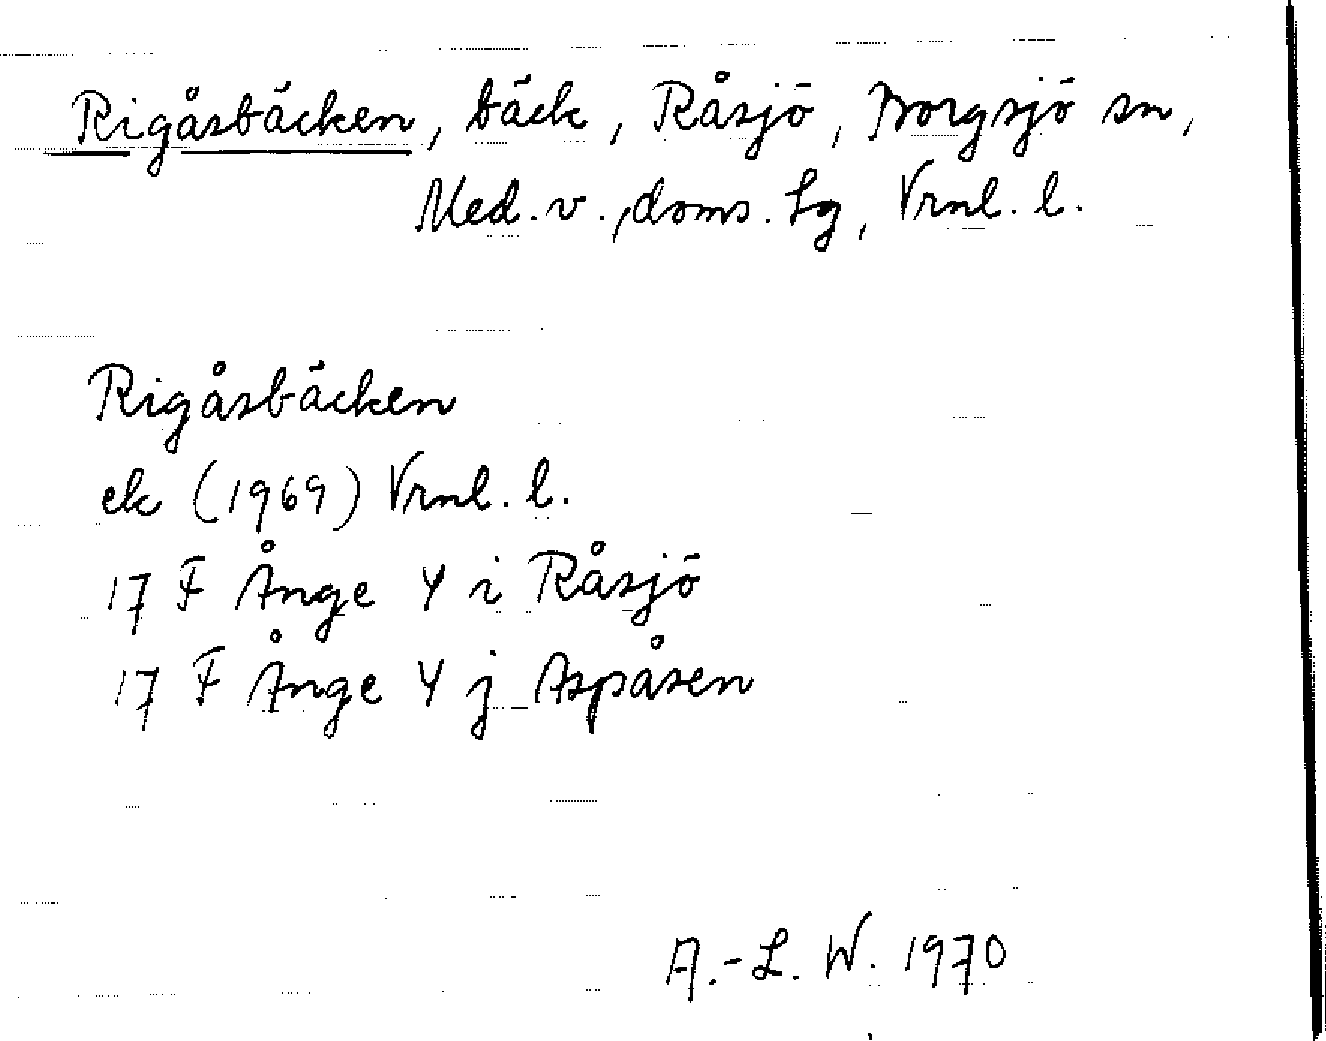 Rigåsbäcken, bäck, Råsjö, Borgsjö sn,
Med. v., doms. Lg, Vrnl. l.
Rigåsbäcken
ek (1969) Vrnl. l.
17 F Ånge Y i Råsjö
17 F Ånge Y j Aspåsen
A.-L. W. 1970